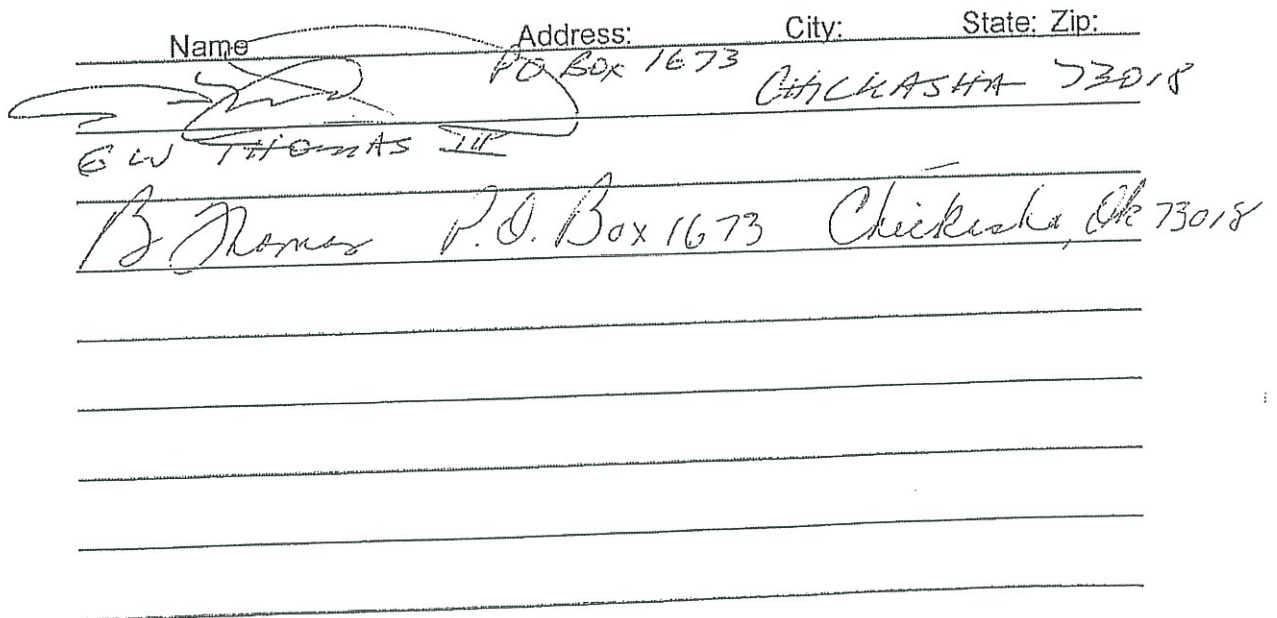 Name Address: City: State: Zip:
PO BOX 1673 CHICKASHA 73018
E W THOMAS III
B. Thomas P.O. Box 1673 Chickasha, Ok 73018